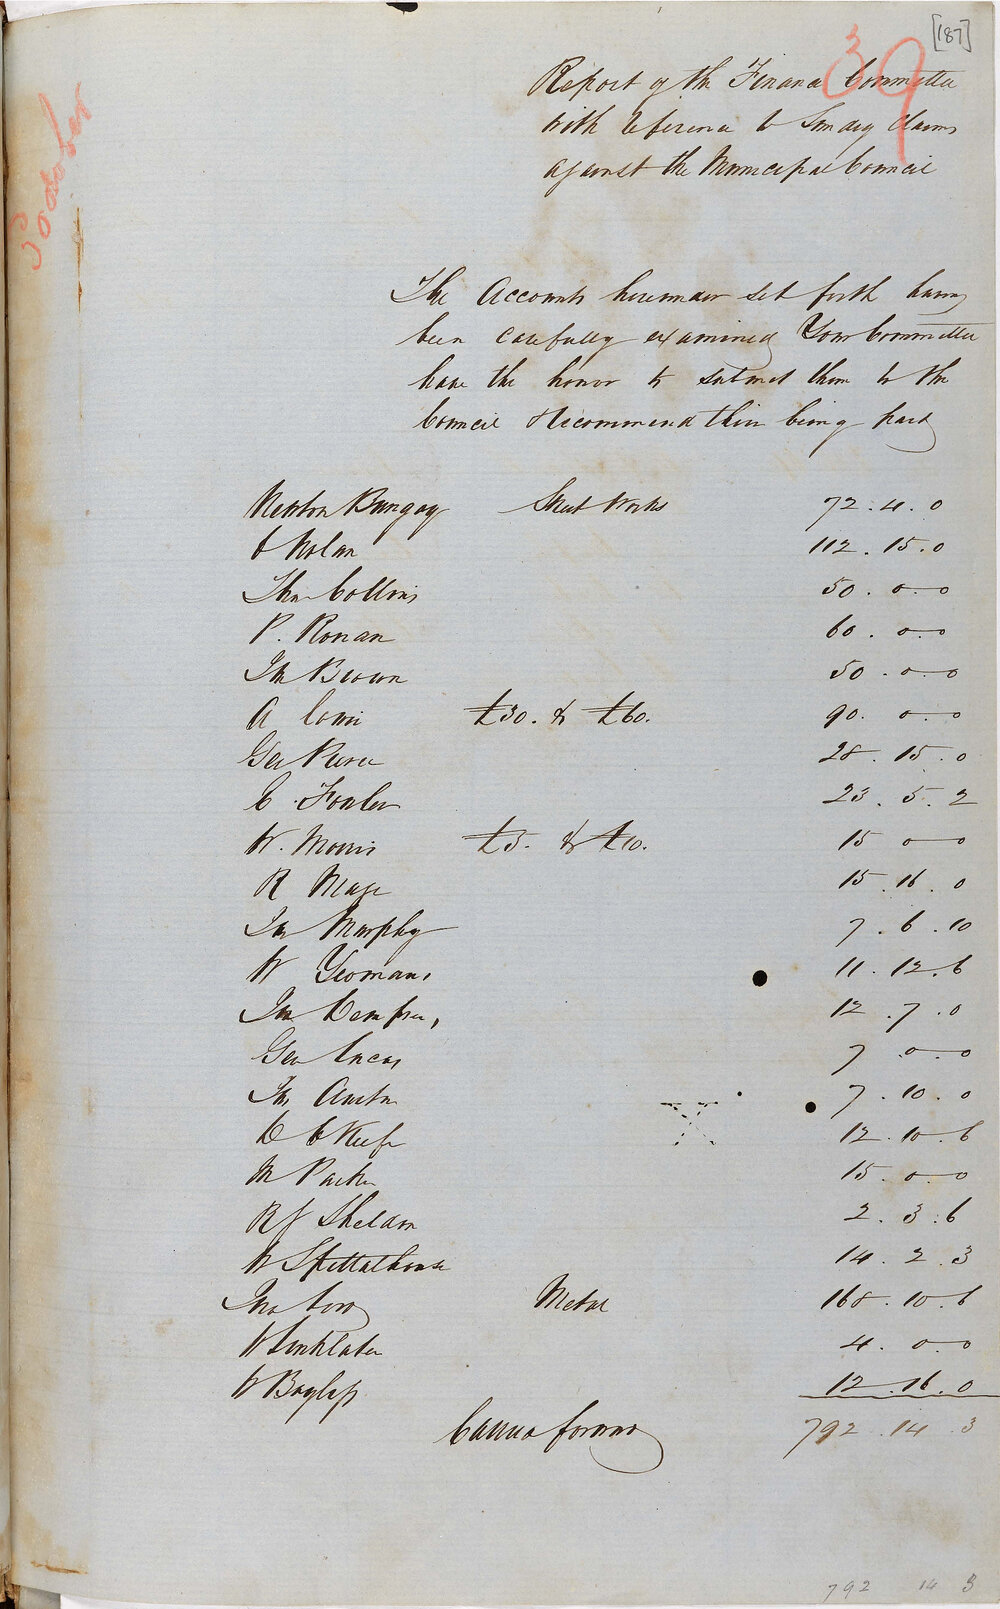 [187]
39
October
Report of the Finance Committee
with reference to Sundry Claims
against the Municipal Council
The Accounts hereunder set forth having
been carefully examined Your Committee
have the honor to submit them to the
Council & recommend their being paid
Newton Bungay Street Works 72 . 4 . 0
Nolan 112 . 15 . 0
Thos Collins 50 . 0 . 0
P. Ronan 60 . 0 . 0
Jn Brown 50 . 0 . 0
A £30. & £60. 90 . 0 . 0
Geo Pierce 28 . 15 . 0
C. Fowler 23 . 5 . 2
W. Morris £5. & £10. 15 0 0
R Mace 15 . 16 . 0
Jas Murphy 7 . 6 . 10
W Yeomans 11 . 12 . 6
Jas Dempsey 12 . 7 . 0
Geo Lucas 7 0 0
7 . 10 . 0
D O'Keefe 12 . 10 . 6
M Parker 15 . 0 . 0
Sheldon 2 . 3 . 6
W Spittalhouse 14 . 2 3
Jno Metal 168 . 10 . 6
W Linklater 4 . 0 . 0
W Bayless 12 . 16 . 0
Carried forward 792 . 14 3
792 14 3